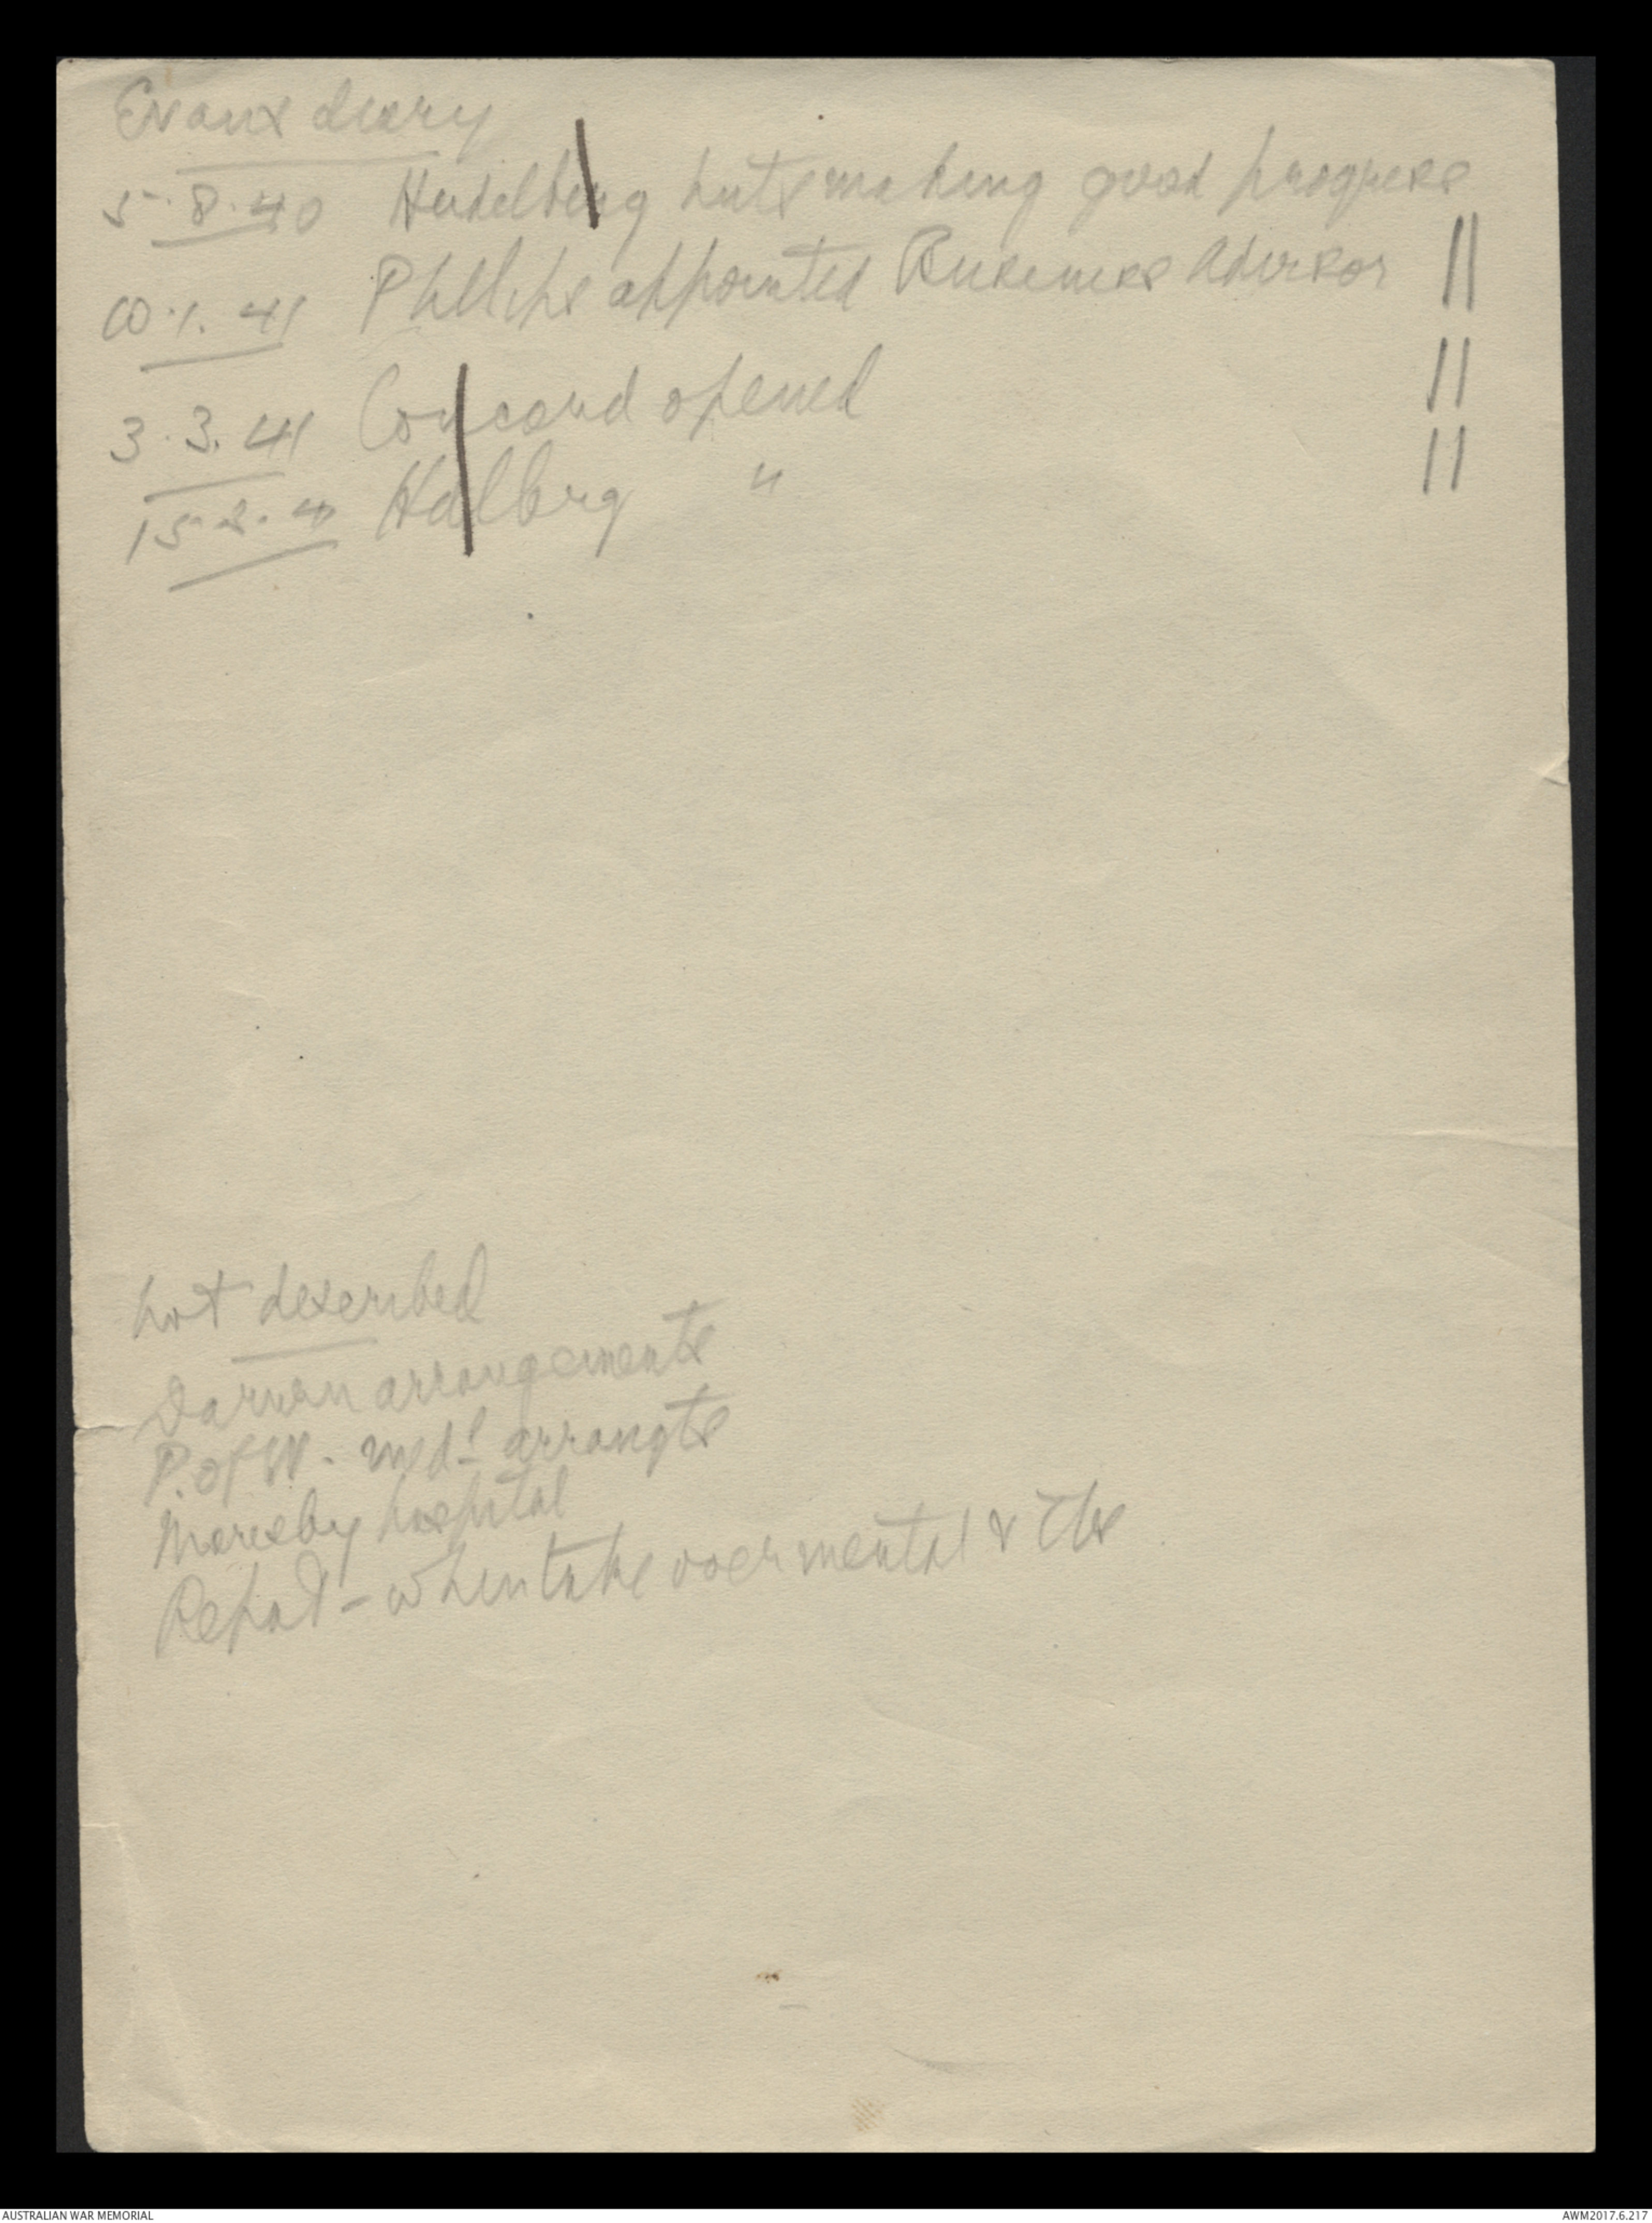 Evans diary
5.8.40 Heidelberg huts making good progress
10.1.41 Phillips appointed Business Advisor ||
3.3.41 Concord opened ||
15.3.41 Hdlbrg " ||
not described
Darwin arrangements
P. of W. medl arrangts
Moresby hospital
Repat - when take over mental & Tbs
AUSTRALIAN WAR MEMORIAL
AWM2017.6.217